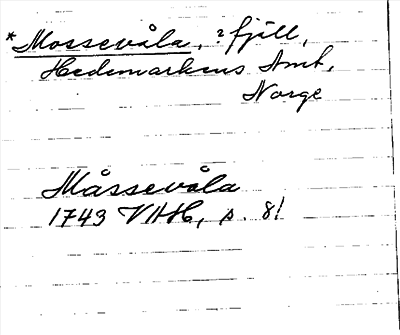 * Mossevåla, ? fjäll,
Hedemarkens Amt,
Norge
Måssevåla
1743 VHH, s. 81